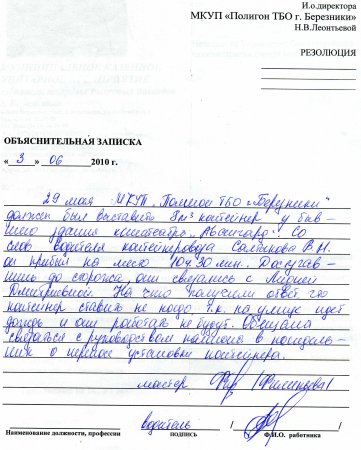 И.о.директора
МКУП «Полигон ТБО г. Березники»
Н.В.Леонтьевой
РЕЗОЛЮЦИЯ
ОБЪЯСНИТЕЛЬНАЯ ЗАПИСКА
« 3 » 06 2010 г.
29 мая МКУП "Полигон ТБО г. Березники"
должен был выставить 8м³ контейнер у быв-
шего здания кинотеатра "Авангард". Со
слов водителя контейнеровоза В.Н.
он прибыл на место 10ч 30 мин. Достучав-
шись до сторожа, они связались с Лидией
Дмитриевной. На что получили ответ, что
контейнер ставить не надо т.к. на улице идет
дождь и они работать не будут. Обещала
связаться с руководством полигона в понедель-
ник о переносе установки контейнера.
мастер
водитель / /
Наименование должности, профессии подпись Ф.И.О. работника